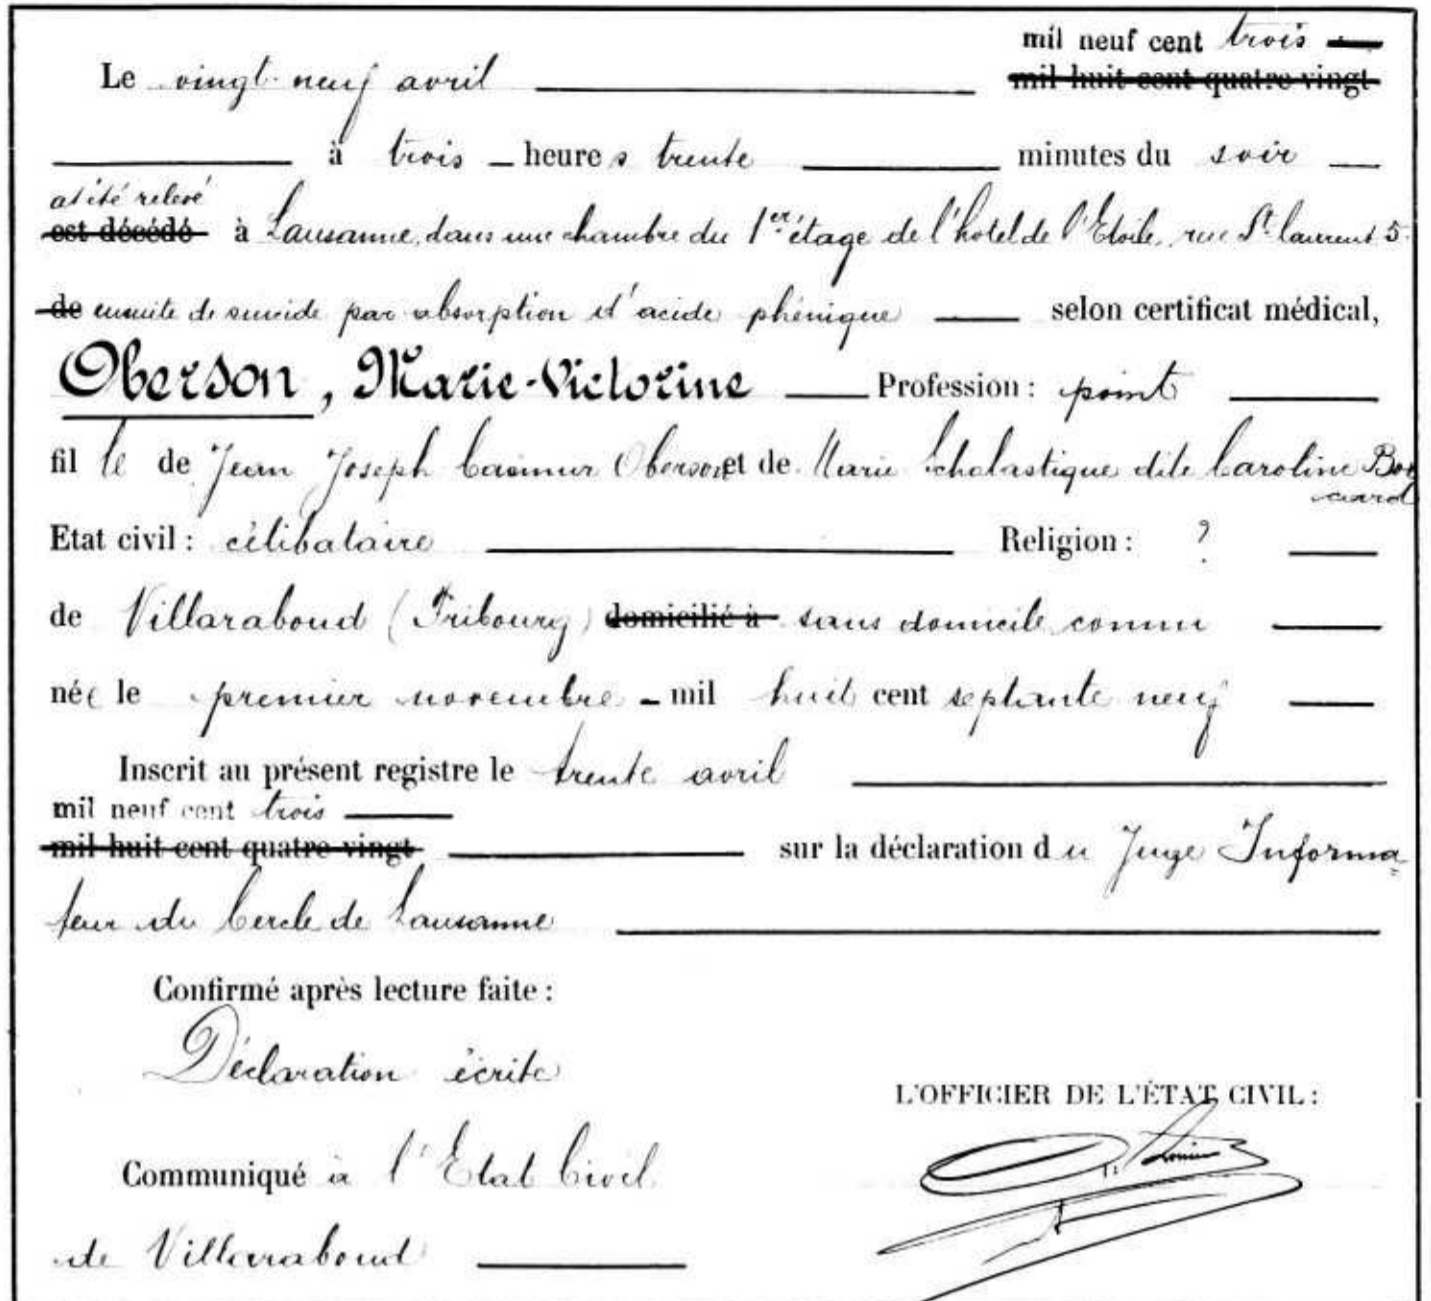 mil neuf cent trois
Le vingt-neuf avril mil huit cent quatre-vingt
à trois heures trente minutes du soir
a été relevé
est décédé à Lausanne, dans une chambre du 1er étage de l'hotel de l'Etoile, rue St laurent 5.
de ensuite de suicide par absorption d'acide phénique selon certificat médical,
Oberson, Marie-Victorine Profession : point
fille de Jean Joseph Casimir Oberson et de Marie Scholastique dite Caroline Bos
card
Etat civil : célibataire Religion : ?
de Villaraboud (Fribourg) domicilié à sans domicile connu
née le premier novembre mil huit cent septante neuf
Inscrit au présent registre le trente avril
mil neuf cent trois
mil huit cent quatre-vingt sur la déclaration du Juge Informa=
teur du Cercle de Lausanne
Confirmé après lecture faite :
Déclaration écrite
L'OFFICIER DE L'ÉTAT CIVIL :
Communiqué à l'Etat Civil
de Villaraboud